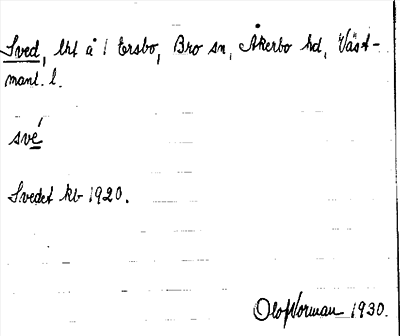 Sved, lht å i Ersbo, Bro sn, Åkerbo hd, Väst-
manl. l.
své
Svedet kb 1920.
Olof Vorman 1930.